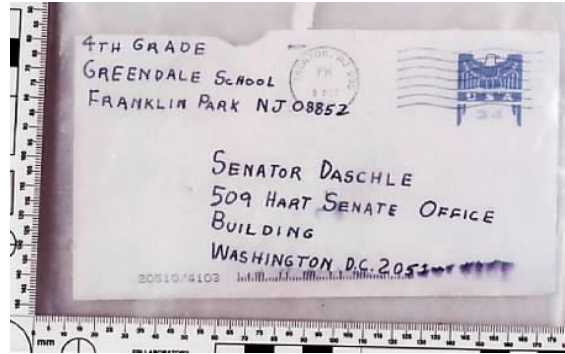 4TH GRADE
GREENDALE SCHOOL
FRANKLIN PARK NJ 08852
PM
USA
34
SENATOR DASCHLE
509 HART SENATE OFFICE
BUILDING
WASHINGTON D.C. 205
20510/4103
mm
LABORATORY